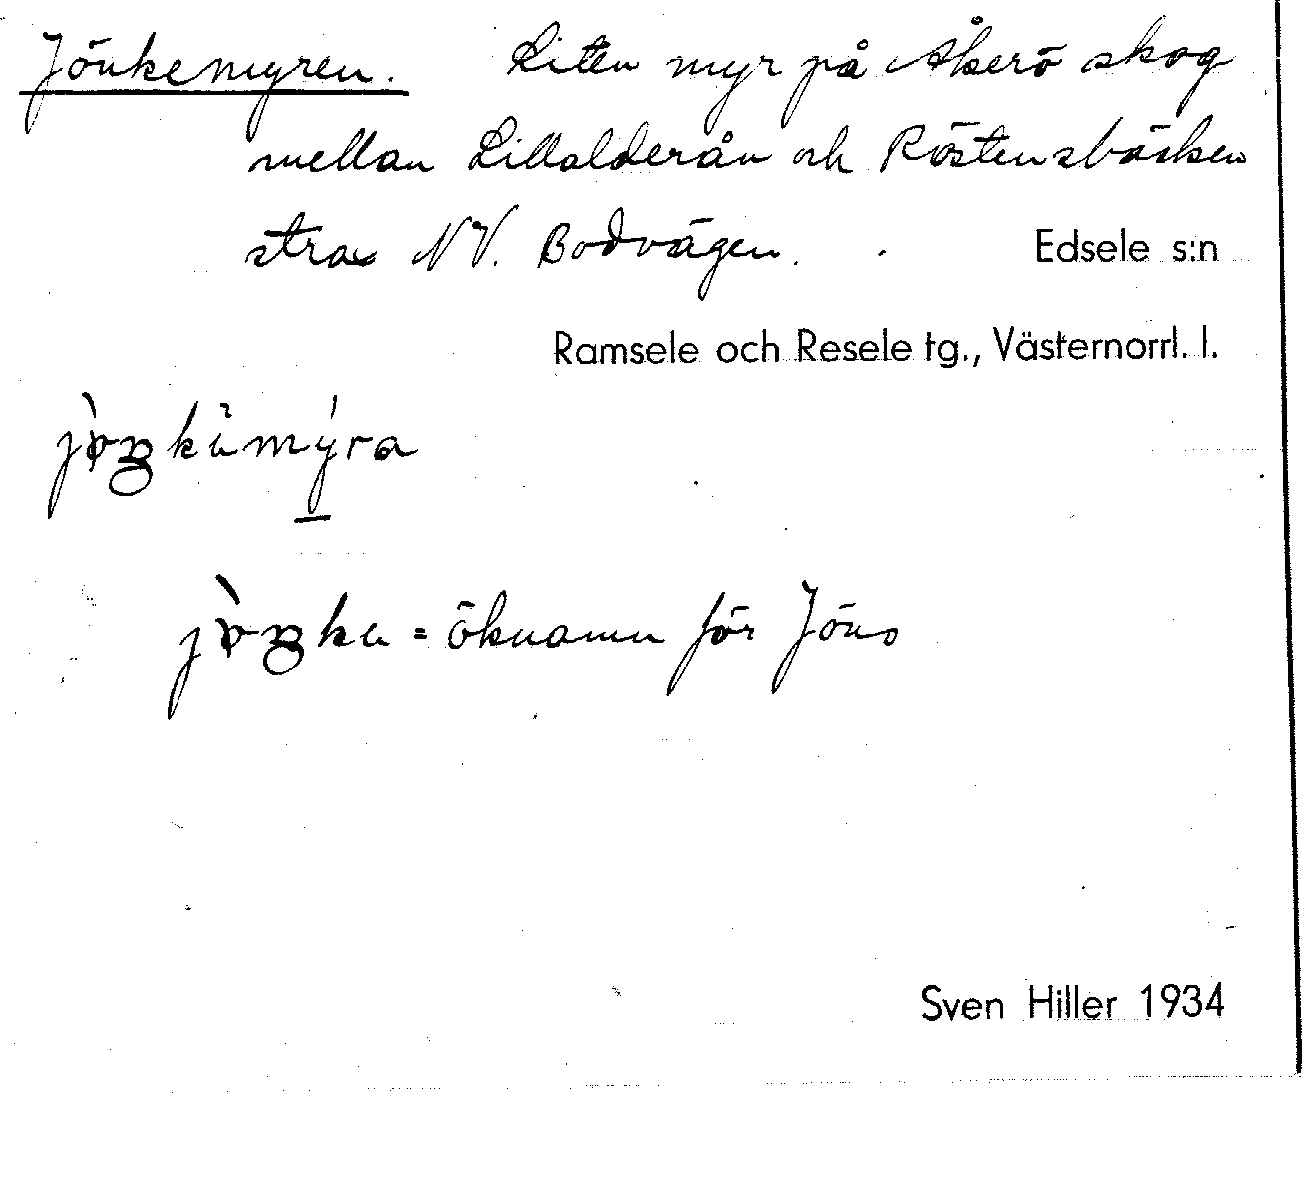 Jönkemyren. Liten myr på Åkerö skog
mellan Lillalderån och Röstensbäcken
strax NV. Bodvägen. Edsele s:n
Ramsele och Resele tg., Västernorrl. l.
= öknamn för Jöns
Sven Hiller 1934